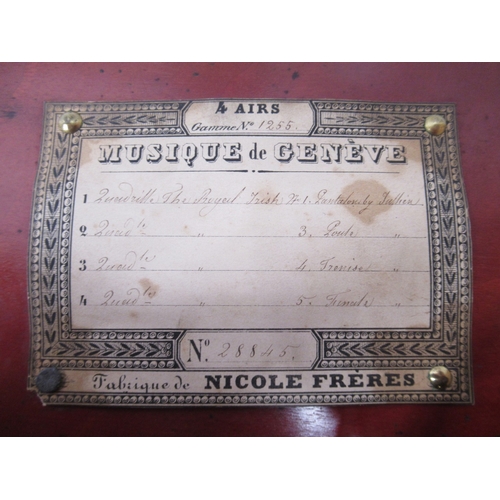 4 AIRS
Gamme No. 1255.
MUSIQUE de GENÈVE
1 Quadrille The Royal Irish No 1. Pantalon by Jullien
2 Quadlle " 3. Poule "
3 Quadlle " 4. Trenise "
4 Quadlle " 5. Finale "
No. 28845.
Fabrique de NICOLE FRÈRES